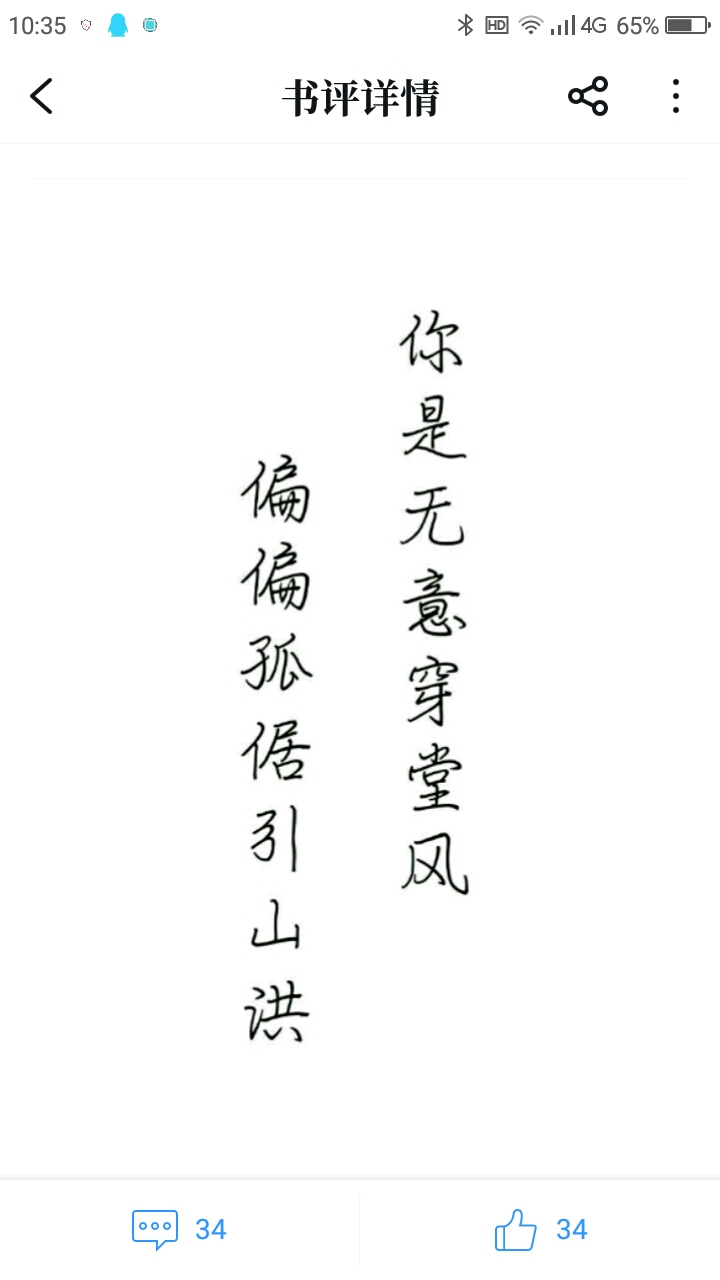 10:35 HD 4G 65%
书评详情
你是无意穿堂风
偏偏孤倨引山洪
34 34